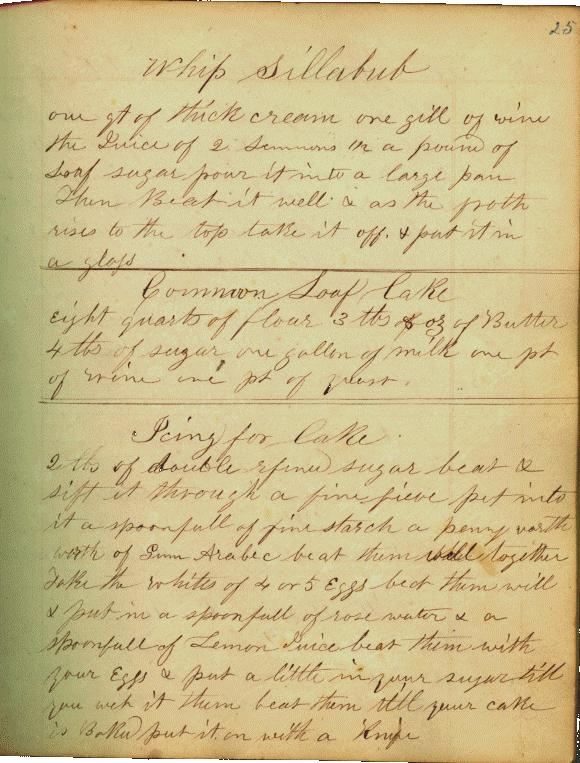 25
Whip Sillabub
one qt of thick cream one gill of wine
the Juice of 2 Lemmons in a pound of
Loaf sugar pour it into a large pan
Then Beat it well & as the froth
rises to the top take it off. & put it in
a glass
Common Loaf Cake
Eight quarts of flour 3 lbs of Butter
4 lbs of sugar one gallon of milk one pt
of wine one pt of yeast.
Icing for Cake.
2 lbs of double refined sugar beat &
sift it through a fine sieve put into
it a spoonfull of fine starch a penny worth
worth of Gum Arabec beat them well together
Take the whites of 4 or 5 Eggs beat them will
& put in a spoonfull of rose water & a
spoonfull of Lemon Juice beat them with
your Eggs & put a little in your sugar till
you wet it them beat them till your cake
is Baked put it on with a Knife